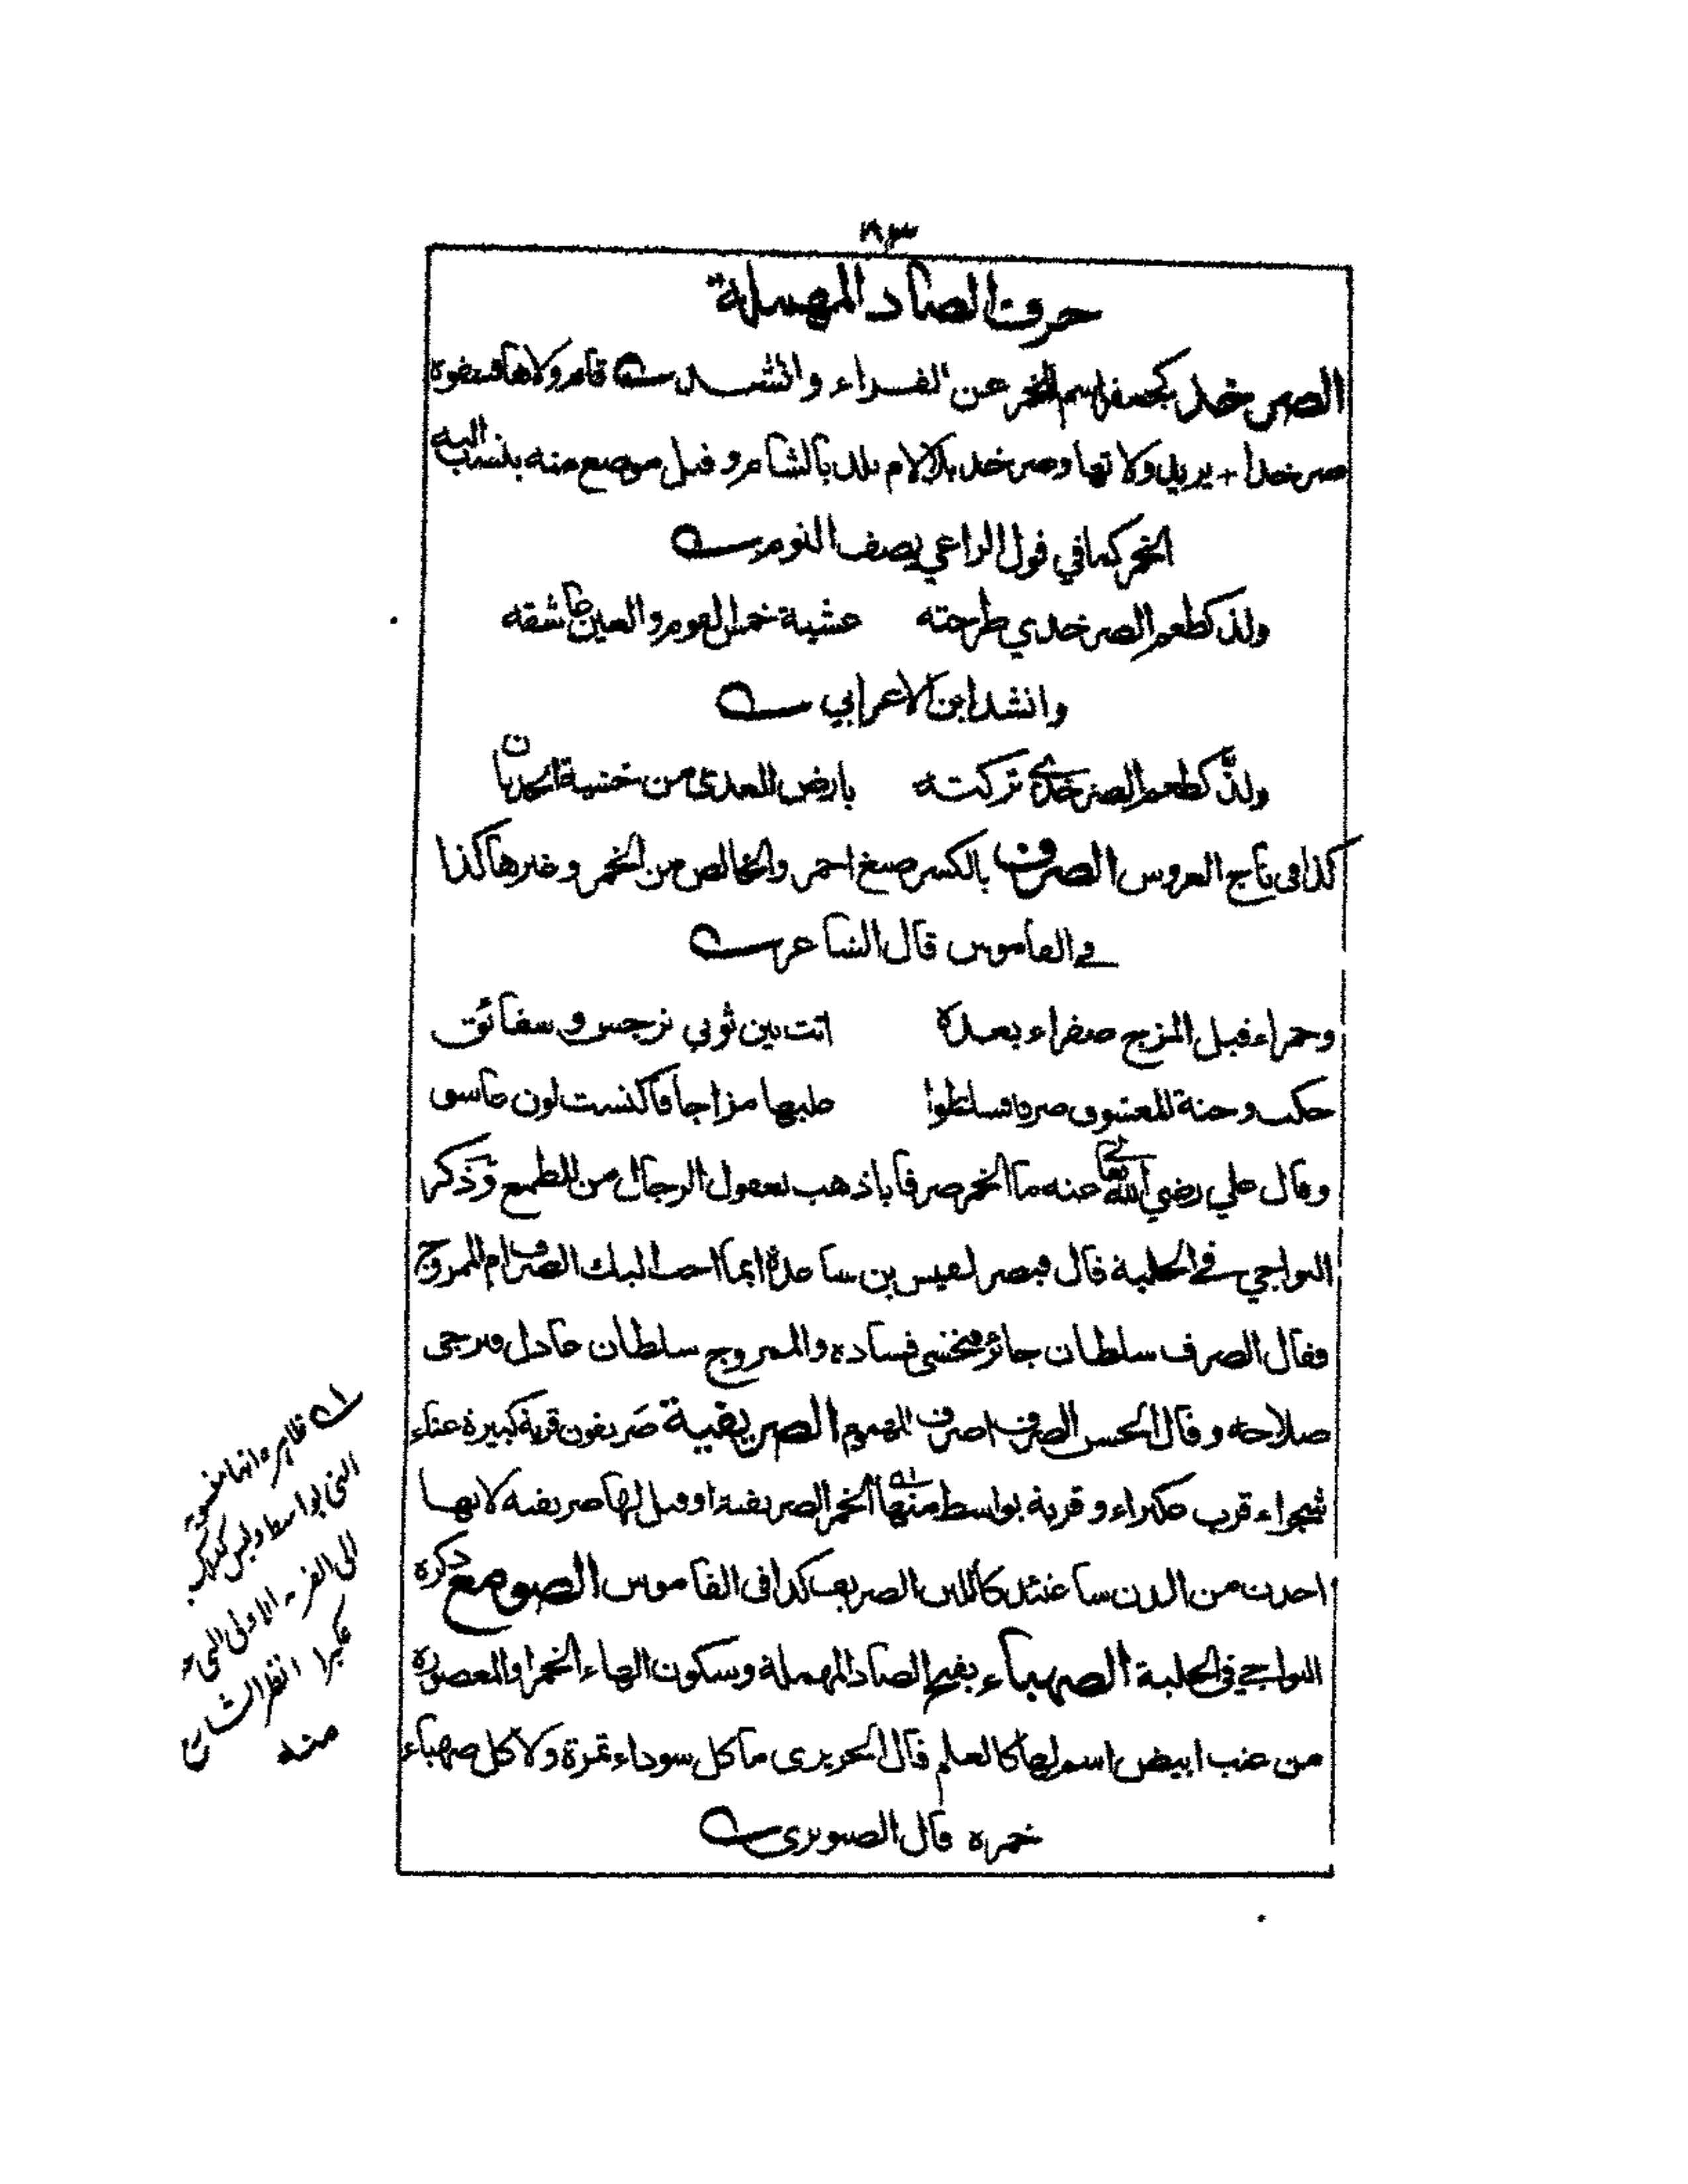 ١٨٣
حرف الصاد المهملة
الصرخد كجعفر اسم للخمر عن الفراء وانشد قام ولاها فسقوه
صرخدا + يريد ولاتها وصرخد بلا لام بلد بالشام وقيل موضع منه ينسب اليه
الخمر كما في قول الراعي يصف النوم
ولذ كطعم الصرخدي طرحته عشية خمس القوم والعين عاشقه
وانشد ابن الاعرابي
ولذّ كطعم الصرخدي تركته بارض العدى من خشية الحدثان
كذا في تاج العروس الصرف بالكسر صبغ احمر والخالص من الخمر وغيرها كذا
في القاموس قال الشاعر
وحمراء قبل المزج صفراء بعده اتت بين ثوبي نرجس وشقائق
حكت وجنة المعشوق صرفا فسلطوا عليها مزاجا فاكتست لون عاشق
وقال علي رضي الله تعالى عنه ما الخمر صرفا باذهب لعقول الرجال من الطمع وذكر
النواجي في الحلبة قال قيصر لقيس بن ساعدة ايما احب اليك الصرف ام الممزوج
فقال الصرف سلطان جائز فيخشى فساده والممزوج سلطان عادل فيرجى
صلاحه وقال الحسن الصرف اصرف للهموم الصريفية صَريفون قرية كبيرة غناء
شجراء قرب عكبراء وقرية بواسط منها الخمر الصريفية او قيل لها صريفية لانها
اخذت من الدن ساعتئذ كاللبن الصريف كذا في القاموس الصومع ذكره
النواجي في الحلبة الصهباء بفتح الصاد المهملة وسكون الهاء الخمر او المعصورة
من عنب ابيض اسم لها كالعلم قال الحريري ما كل سوداء تمرة ولا كل صهباء
خمره قال الصنوبري
ظاهره انها منسوبه
التي بواسط وليس كذلك
الى القرية الاولى التي
عكبرا انظر الشارح
منه